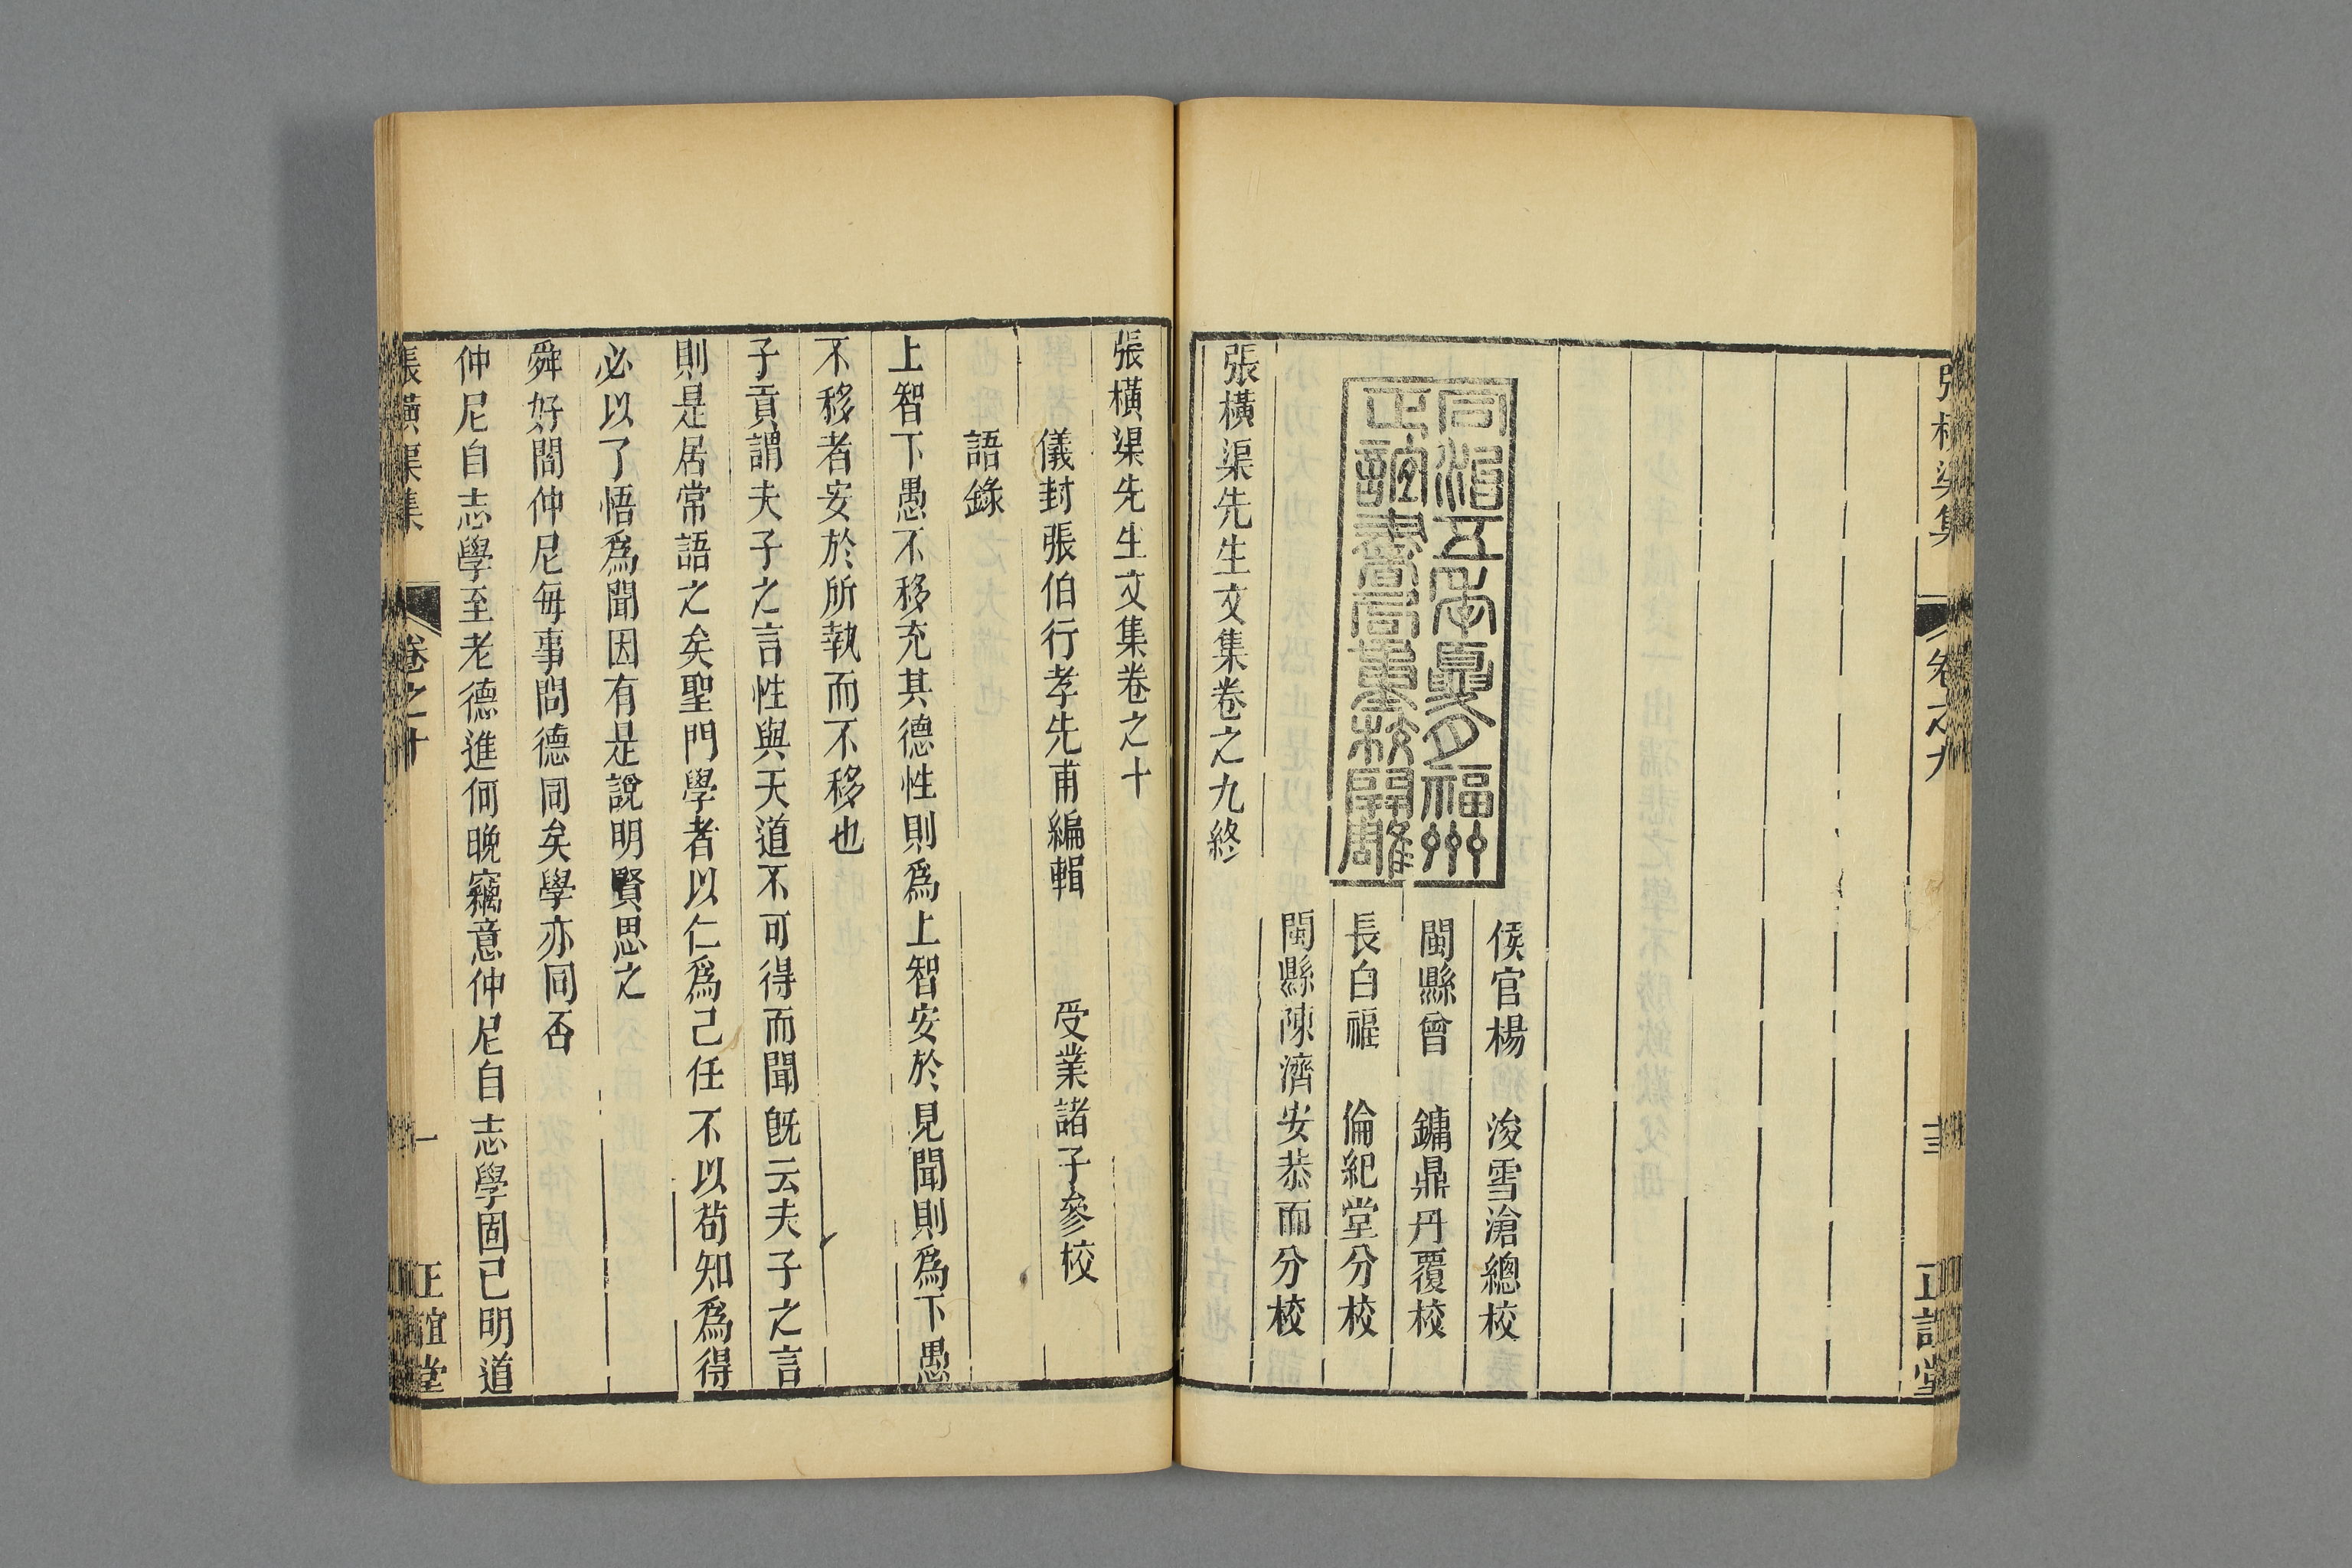 張橫渠集
卷之九
正誼堂
同治五年夏月福州
正誼書局重校開雕
侯官楊 浚雪滄總校
閩縣曾 鏞鼎丹覆校
長白福 倫紀堂分校
閩縣陳濟安恭而分校
張橫渠先生文集卷之九終
張橫渠先生文集卷之十
儀封張伯行孝先甫編輯 受業諸子參校
語錄
上智下愚不移充其德性則爲上智安於見聞則爲下愚
不移者安於所執而不移也
子貢謂夫子之言性與天道不可得而聞旣云夫子之言
則是居常語之矣聖門學者以仁爲己任不以苟知爲得
必以了悟爲聞因有是說明賢思之
舜好問仲尼每事問德同矣學亦同否
仲尼自志學至老德進何晚竊意仲尼自志學固已明道
張橫渠集
卷之十
一
正誼堂